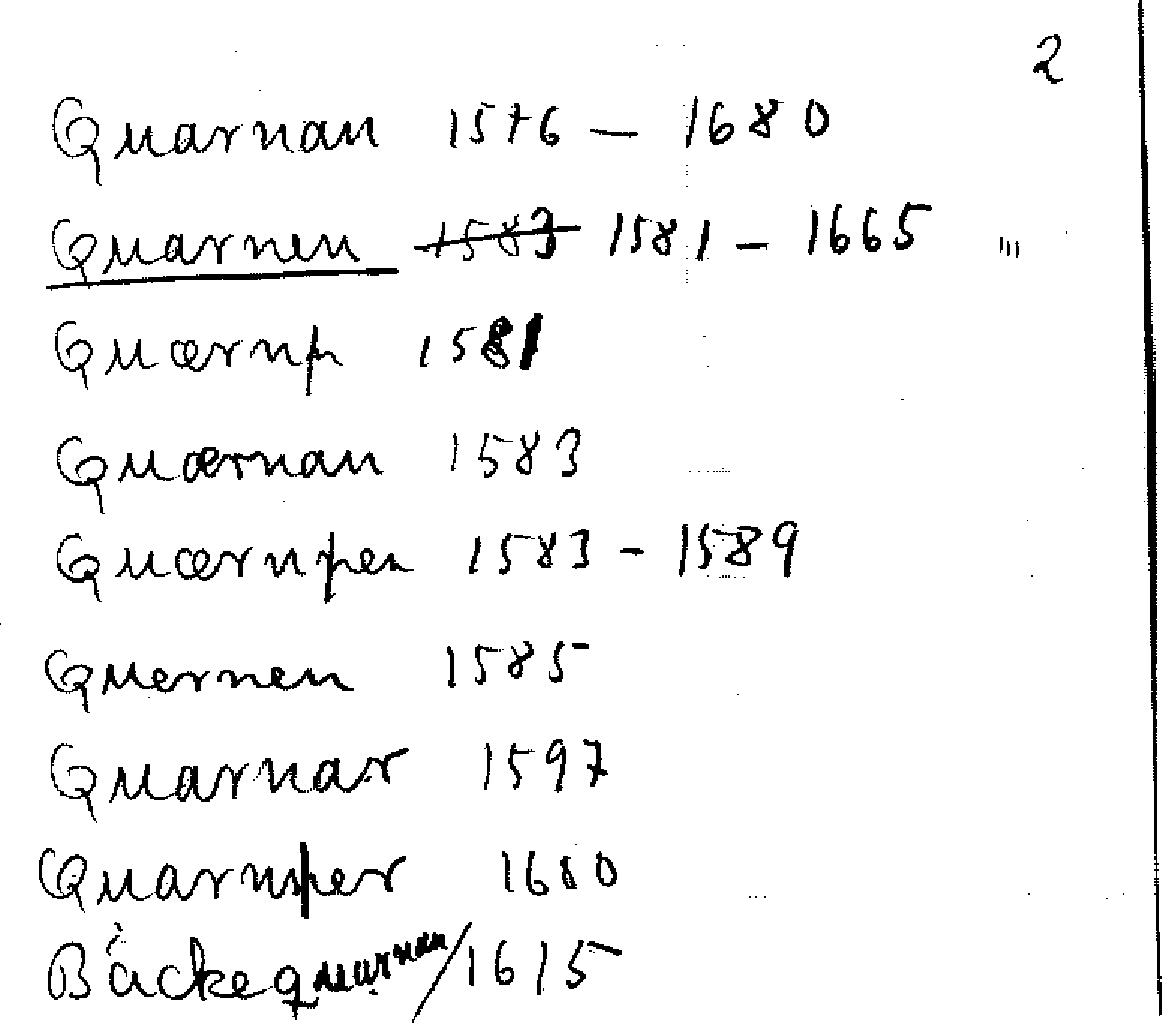 2
Quarnan 1576 – 1680
Quarnen 1583 1581 – 1665 "'
Quærnp 1581
Quærnan 1583
Quærnpen 1583 - 1589
Quernen 1585
Quarnar 1597
Quarnper 1680
Bäckequarnan / 1615